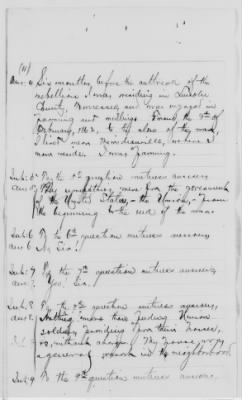 (11)
Ans. 4 Six months before the outbreak of the
rebellion I was residing in Lincoln
County, Tennessee, and was engaged in
Farming and milling. From the 8th of
February, 1862, to the close of the war,
I lived near where I
now reside. I was farming.
Int. 5 To the 5th question witness answers
Ans. 5 My sympathies were for the government
of the United States, - the Union, - from
the beginning to the end of the war.
Int. 6 To the 6th question witness answers
Ans. 6 No Sir.
Int. 7 To the 7th question witness answers,
Ans. 7. Yes, Sir.
Int. 8 To the 8th question witness answers,
Ans. 8. Nothing more than feeding Union
soldiers, feeding their horses,
&c, without charge. My house was
a general resort in the neighborhood.
Int. 9 To the 9th question witness answers.